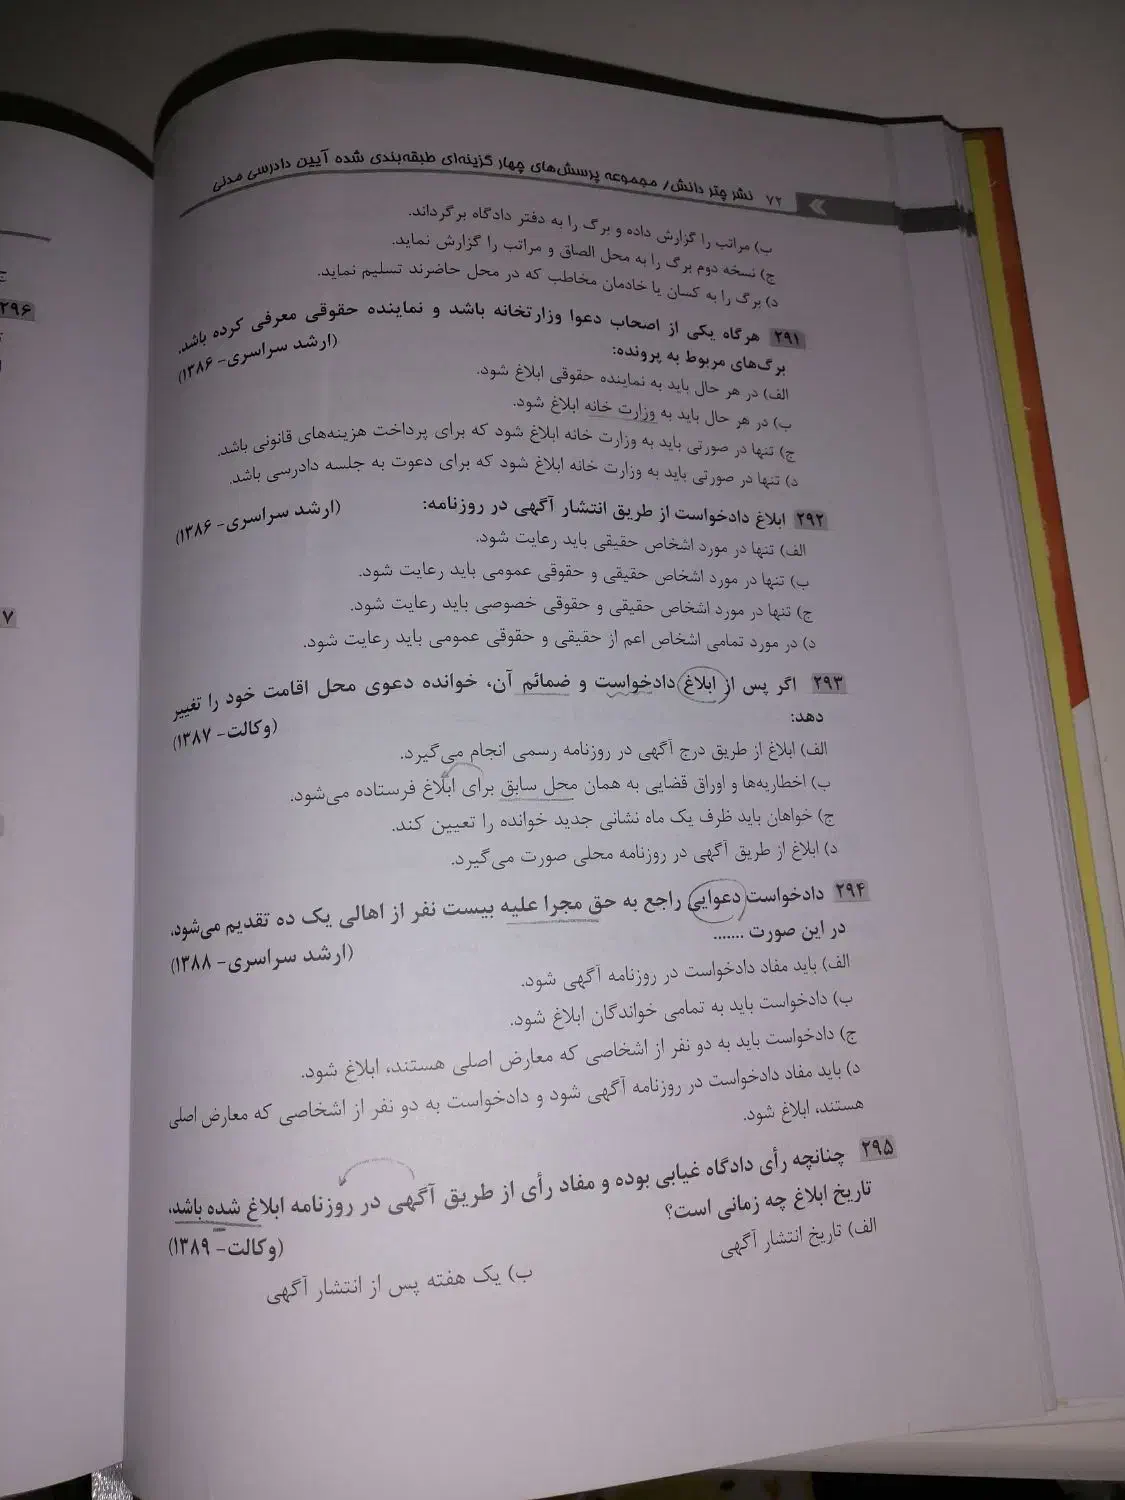 ۷۲ نشر چتر دانش/ مجموعه پرسش‌های چهار گزینه‌ای طبقه‌بندی شده آیین دادرسی مدنی
ب) مراتب را گزارش داده و برگ را به دفتر دادگاه برگرداند.
ج) نسخه دوم برگ را به محل الصاق و مراتب را گزارش نماید.
د) برگ را به کسان یا خادمان مخاطب که در محل حاضرند تسلیم نماید.
۲۹۱ هرگاه یکی از اصحاب دعوا وزارتخانه باشد و نماینده حقوقی معرفی کرده باشد،
برگ‌های مربوط به پرونده: (ارشد سراسری- ۱۳۸۶)
الف) در هر حال باید به نماینده حقوقی ابلاغ شود.
ب) در هر حال باید به وزارت خانه ابلاغ شود.
ج) تنها در صورتی باید به وزارت خانه ابلاغ شود که برای پرداخت هزینه‌های قانونی باشد.
د) تنها در صورتی باید به وزارت خانه ابلاغ شود که برای دعوت به جلسه دادرسی باشد.
۲۹۲ ابلاغ دادخواست از طریق انتشار آگهی در روزنامه: (ارشد سراسری- ۱۳۸۶)
الف) تنها در مورد اشخاص حقیقی باید رعایت شود.
ب) تنها در مورد اشخاص حقیقی و حقوقی عمومی باید رعایت شود.
ج) تنها در مورد اشخاص حقیقی و حقوقی خصوصی باید رعایت شود.
د) در مورد تمامی اشخاص اعم از حقیقی و حقوقی عمومی باید رعایت شود.
۲۹۳ اگر پس از ابلاغ دادخواست و ضمائم آن، خوانده دعوی محل اقامت خود را تغییر
دهد: (وکالت- ۱۳۸۷)
الف) ابلاغ از طریق درج آگهی در روزنامه رسمی انجام می‌گیرد.
ب) اخطاریه‌ها و اوراق قضایی به همان محل سابق برای ابلاغ فرستاده می‌شود.
ج) خواهان باید ظرف یک ماه نشانی جدید خوانده را تعیین کند.
د) ابلاغ از طریق آگهی در روزنامه محلی صورت می‌گیرد.
۲۹۴ دادخواست دعوایی راجع به حق مجرا علیه بیست نفر از اهالی یک ده تقدیم می‌شود،
در این صورت ....... (ارشد سراسری- ۱۳۸۸)
الف) باید مفاد دادخواست در روزنامه آگهی شود.
ب) دادخواست باید به تمامی خواندگان ابلاغ شود.
ج) دادخواست باید به دو نفر از اشخاصی که معارض اصلی هستند، ابلاغ شود.
د) باید مفاد دادخواست در روزنامه آگهی شود و دادخواست به دو نفر از اشخاصی که معارض اصلی
هستند، ابلاغ شود.
۲۹۵ چنانچه رأی دادگاه غیابی بوده و مفاد رأی از طریق آگهی در روزنامه ابلاغ شده باشد،
تاریخ ابلاغ چه زمانی است؟ (وکالت- ۱۳۸۹)
الف) تاریخ انتشار آگهی
ب) یک هفته پس از انتشار آگهی
۲۹۶
۷